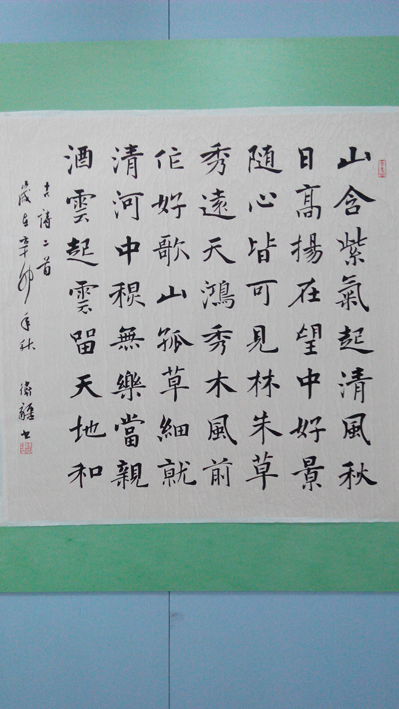 山含紫氣起清風秋
日高揚在望中好景
隨心皆可見林朱草
秀遠天鴻秀木風前
佇好歌山孤草細就
清河中稷無樂當親
酒雲起雲留天地和
古詩二首
歲在辛卯年秋
書